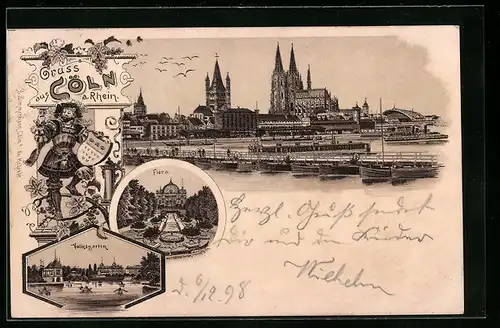 Gruss
aus CÖLN
a. Rhein.
Flora.
Volksgarten
Herzl. Gruß sendet
Dir und den Kinder
Wilhelm
d. 6/12.98